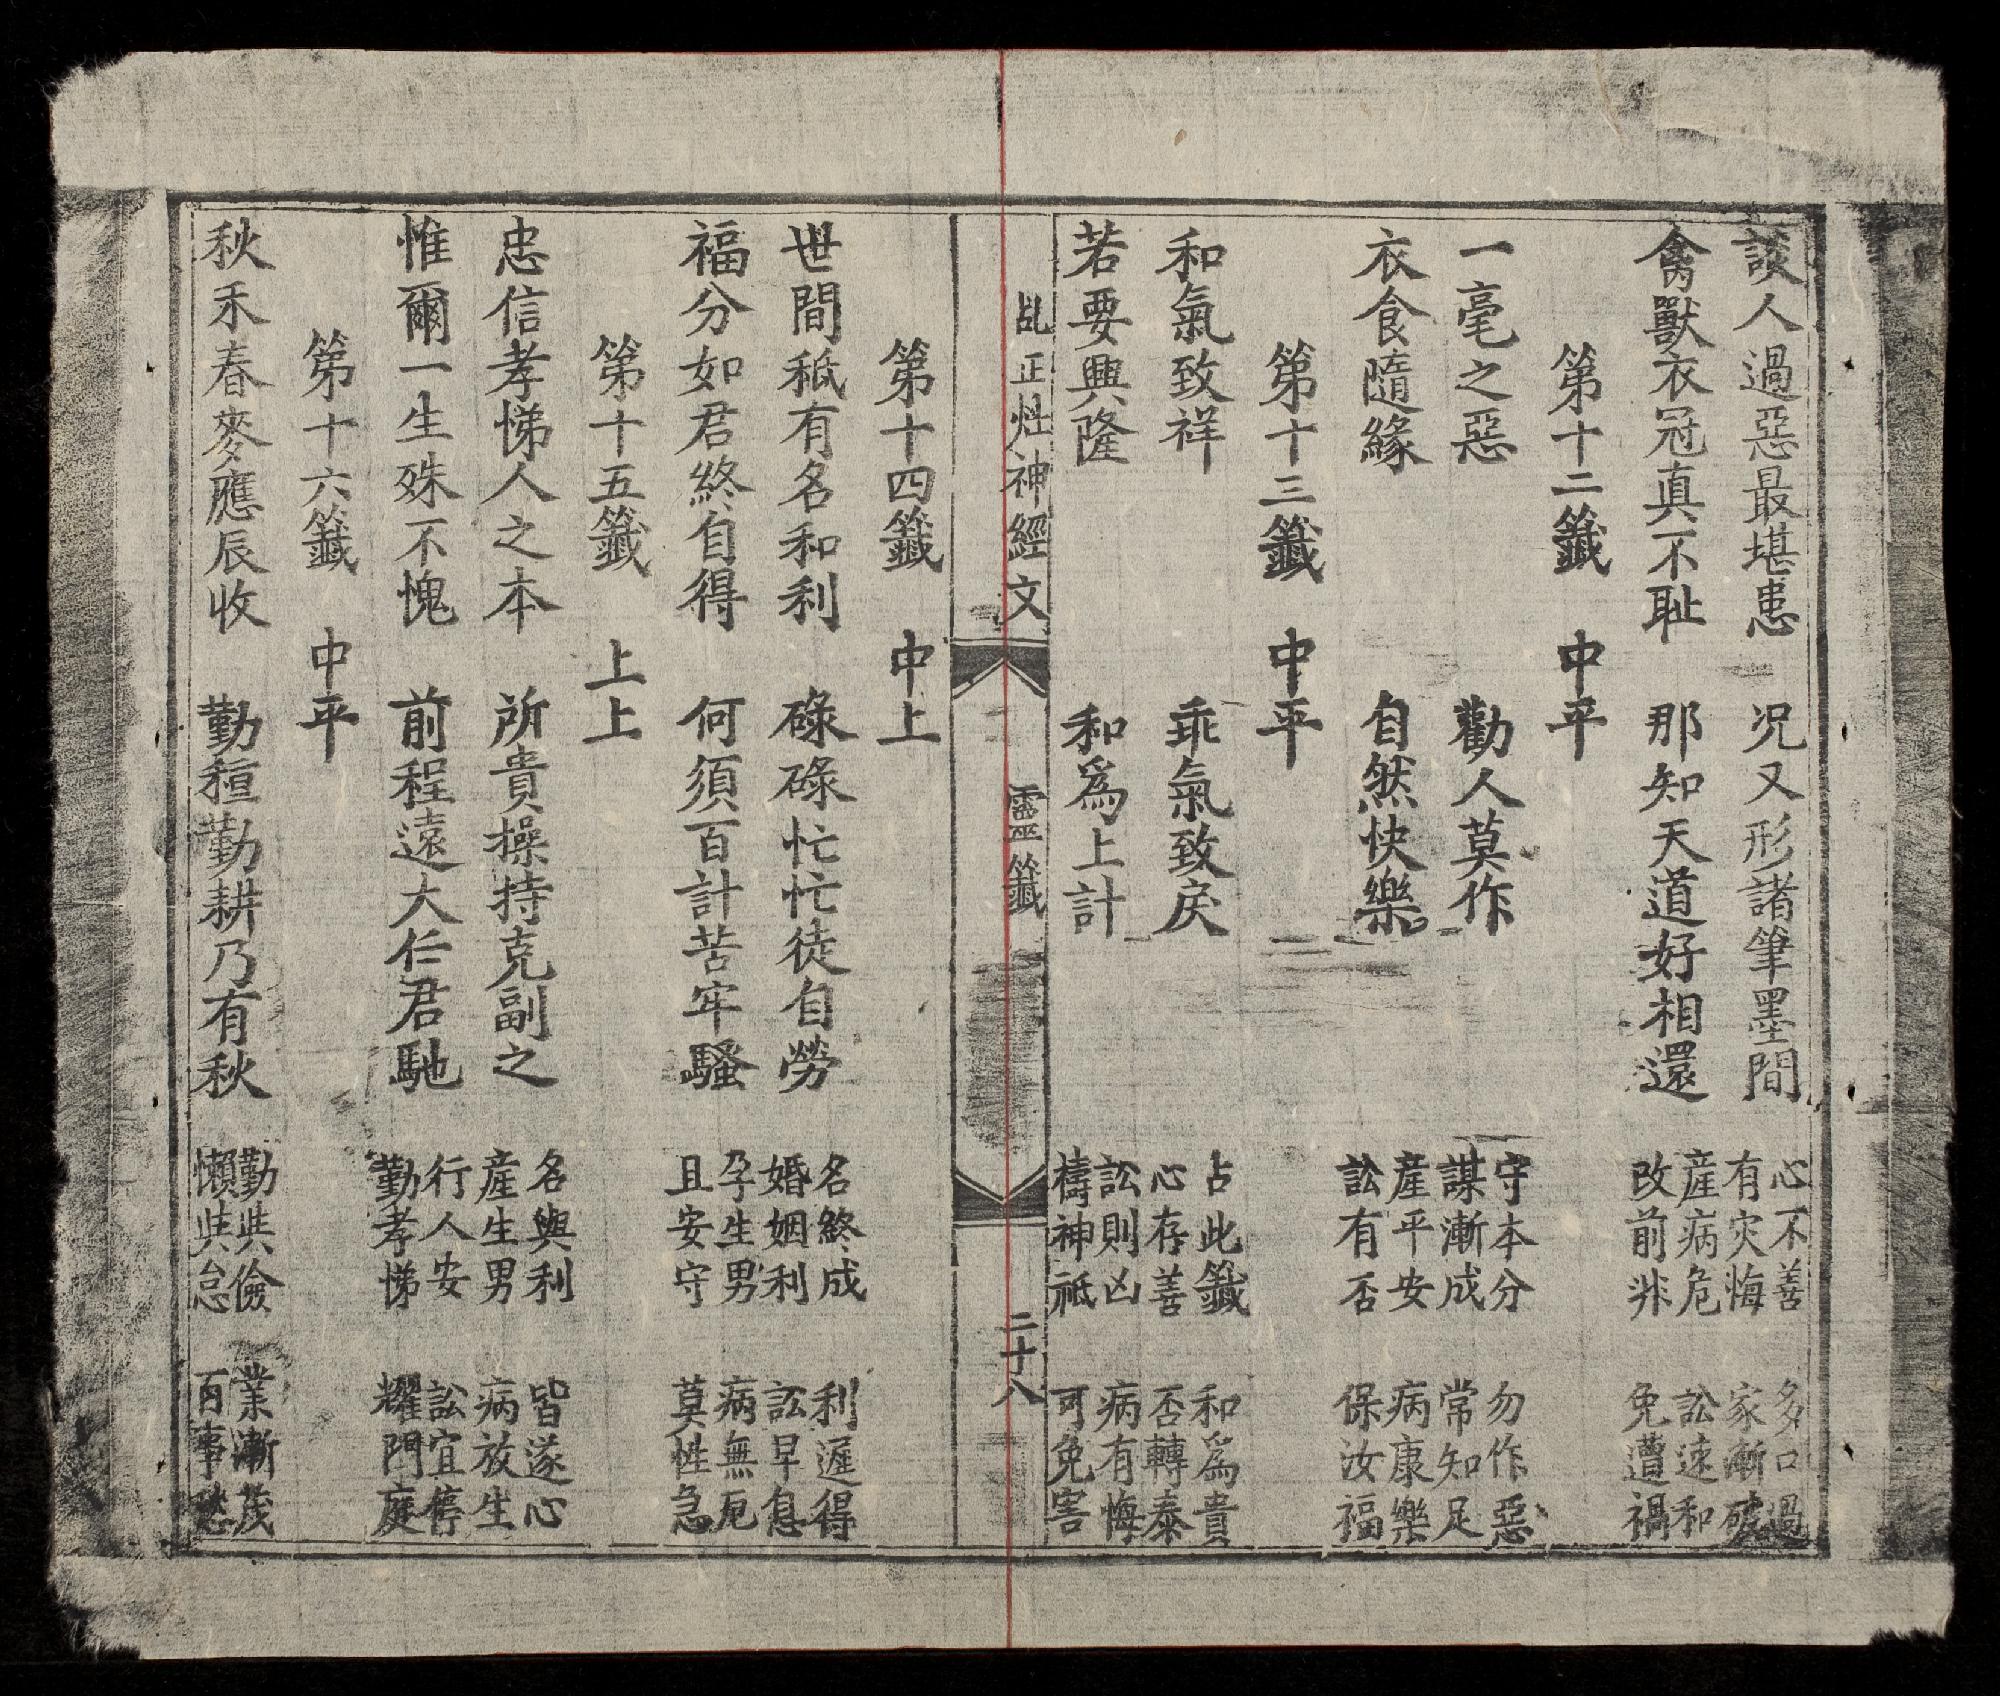 談人過惡最堪患　況又形諸筆墨間
禽獸衣冠真不耻　那知天道好相還
心不善　多口過
有灾悔　家漸破
産病危　訟速和
改前非　免遭禍
第十二籤　中平
一毫之惡　勸人莫作
衣食隨緣　自然快樂
守本分　勿作惡
謀漸成　常知足
産平安　病康樂
訟有否　保汝福
第十三籤　中平
和氣致祥　乖氣致戾
若要興隆　和為上計
占此籤　和為貴
心存善　否轉泰
訟則凶　病有悔
禱神祇　可免害
乩正灶神經文　靈籤　二十八
第十四籤　中上
世間秪有名和利　碌碌忙忙徒自勞
福分如君終自得　何須百計苦牢騷
名終成　利遲得
婚姻利　訟早息
孕生男　病無厄
且安守　莫性急
第十五籤　上上
忠信孝悌人之本　所貴操持克副之
惟爾一生殊不愧　前程遠大仁君馳
名與利　皆遂心
産生男　病放生
行人安　訟宜停
勤孝悌　耀門庭
第十六籤　中平
秋禾春麥應辰收　勤種勤耕乃有秋
勤共儉　業漸茂
懶共怠　百事愁